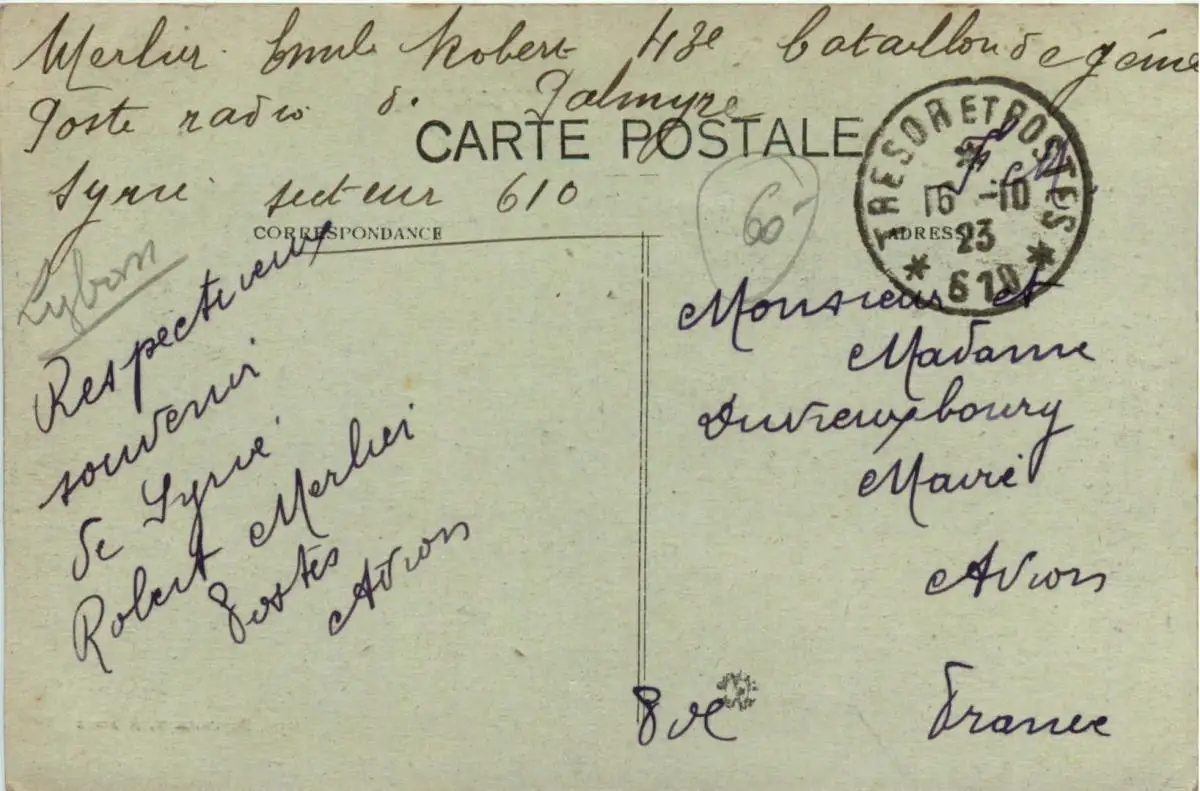 Merlier Emile Robert 43e bataillon de génie
Poste radio de Palmyre
CARTE POSTALE
Syrie secteur 610
CORRESPONDANCE
ADRESSE
TRESOR ET POSTES
16 -10
23
* 610 *
F. M.
60-
Respectueux
souvenir
de Syrie
Robert Merlier
Postes
Avion
Monsieur et
Madame
Duvieuxbourg
Mairie
Avion
P de C
France